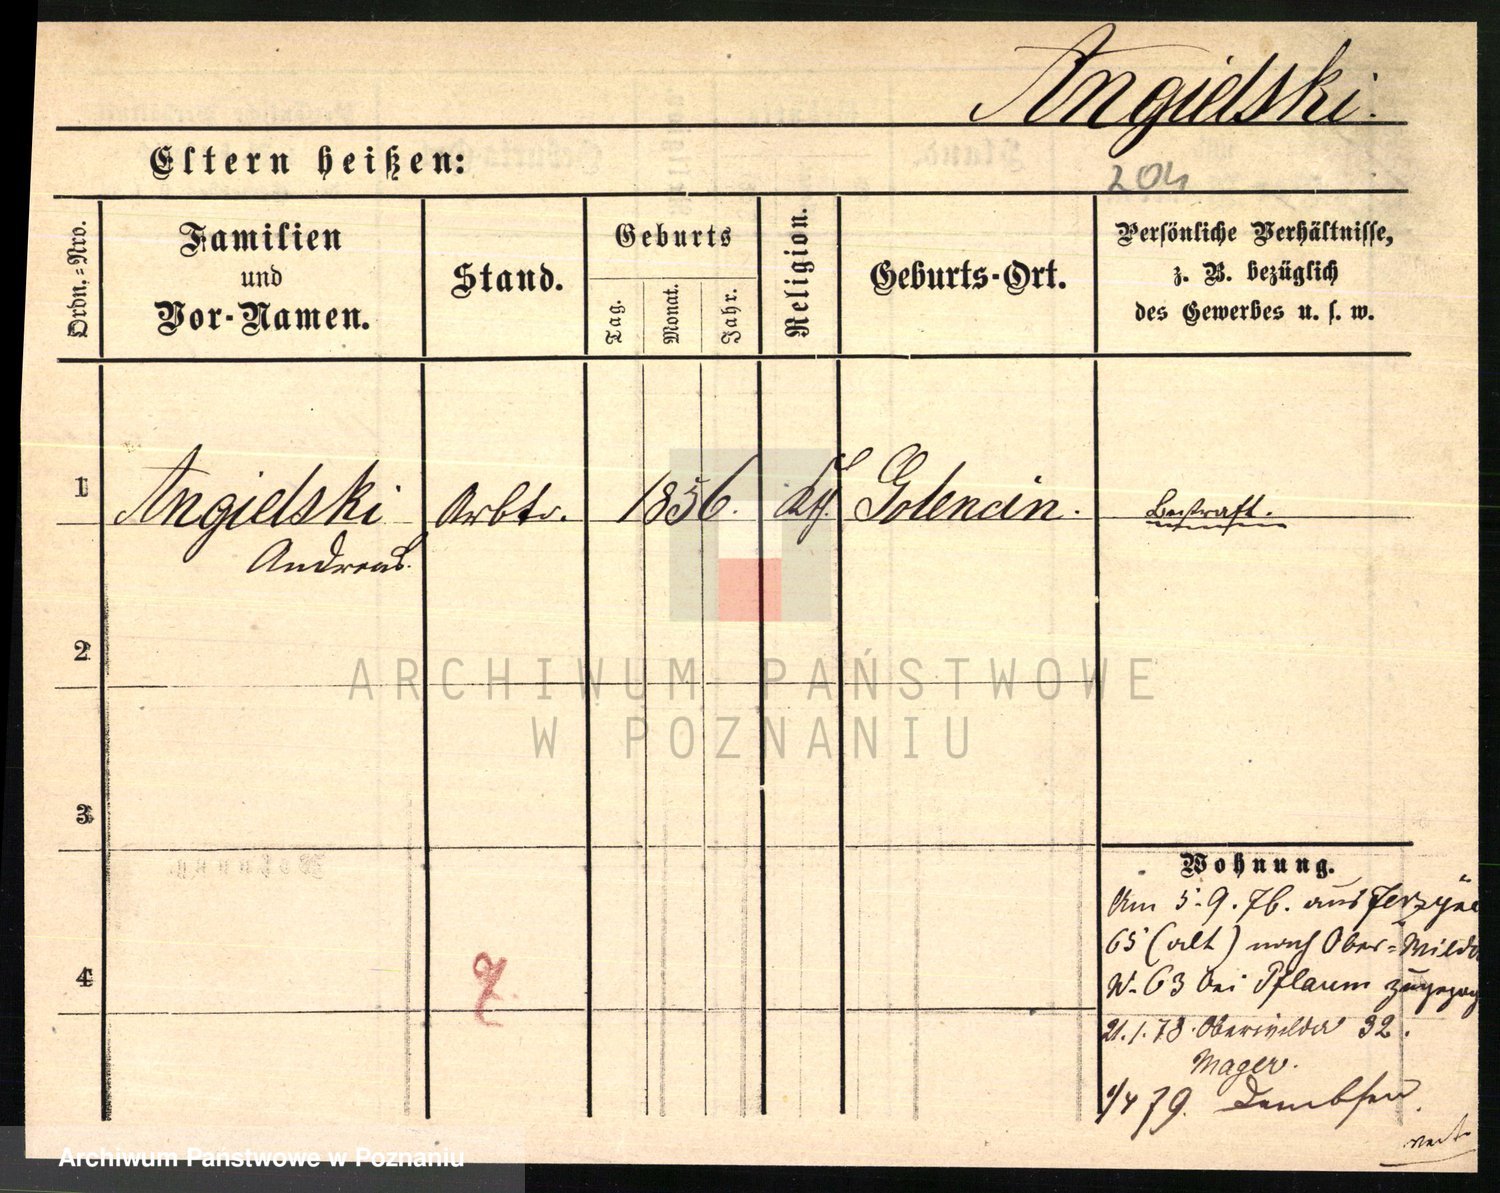 Angielski.
Eltern heißen:
204
Ordn.-Nro.
Familien
und
Vor-Namen.
Stand.
Geburts
Tag.
Monat.
Jahr.
Religion.
Geburts-Ort.
Persönliche Verhältnisse,
z. B. bezüglich
des Gewerbes u. s. w.
1
Angielski
Andreas.
Arbtr.
1856.
kth.
Golencin.
Bestraft.
2
3
4
Wohnung.
Am 5.9.76. aus Jerzyce
65 (alt) nach Ober-Wilda
N. 63 bei Pflaum zugezog
21.1.78. Oberwilda 32.
Mager.
1/4 79. Dembsen
vert.
ARCHIWUM PAŃSTWOWE
W POZNANIU
Archiwum Państwowe w Poznaniu